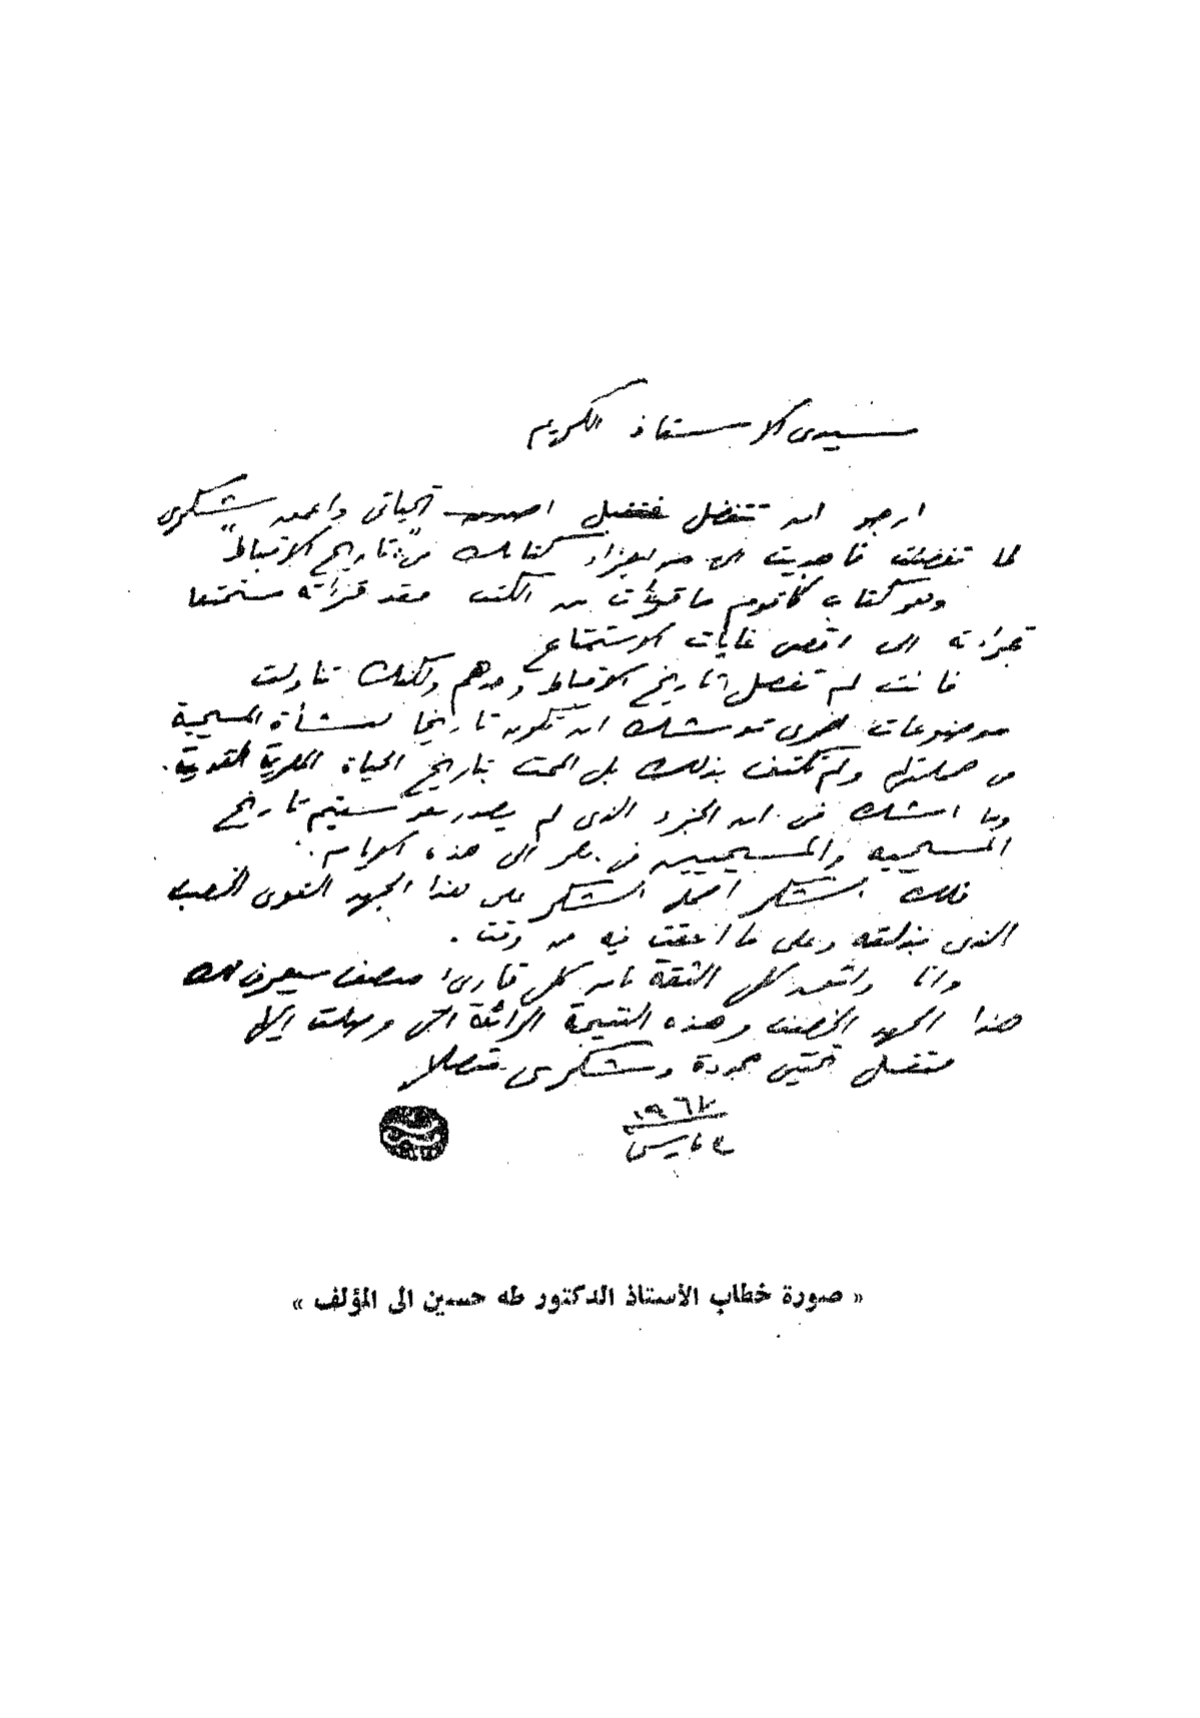 سيدى الاستاذ الكريم
ارجو ان تتفضل فتقبل اصدق تحياتى واعمق شكرى
لما تفضلت فأهديت الى من اجزاء كتابك فى "تاريخ الاقباط"
وهو كتاب كأقوم ما قرأت من الكتب فقد قرأته مستمتعا
بقراءته الى اقصى غايات الاستمتاع
فانت لم تفصل تاريخ الاقباط وحدهم ولكنك تناولت
موضوعات اخرى توشك ان تكون تاريخا لنشأة المسيحية
فى جملتها ولم تكتف بذلك بل الممت بتاريخ الحياة المصرية القديمة.
وما اشك فى ان الجزء الذى لم يصدر بعد سيتم تاريخ
المسيحية والمسيحيين فى مصر الى هذه الايام.
فلك الشكر اجمل الشكر على هذا الجهد القوى الخصب
الذى بذلته وعلى ما انفقت فيه من وقت.
وانا واثق كل الثقة بأن كل قارىء منصف سيعرف لك
هذا الجهد الخصب وهذه النتيجة الرائعة التى وصلت اليها
فتقبل تحيتى مجددة وشكرى متصلا
١٩٦٧
مارس
« صورة خطاب الأستاذ الدكتور طه حسين الى المؤلف »